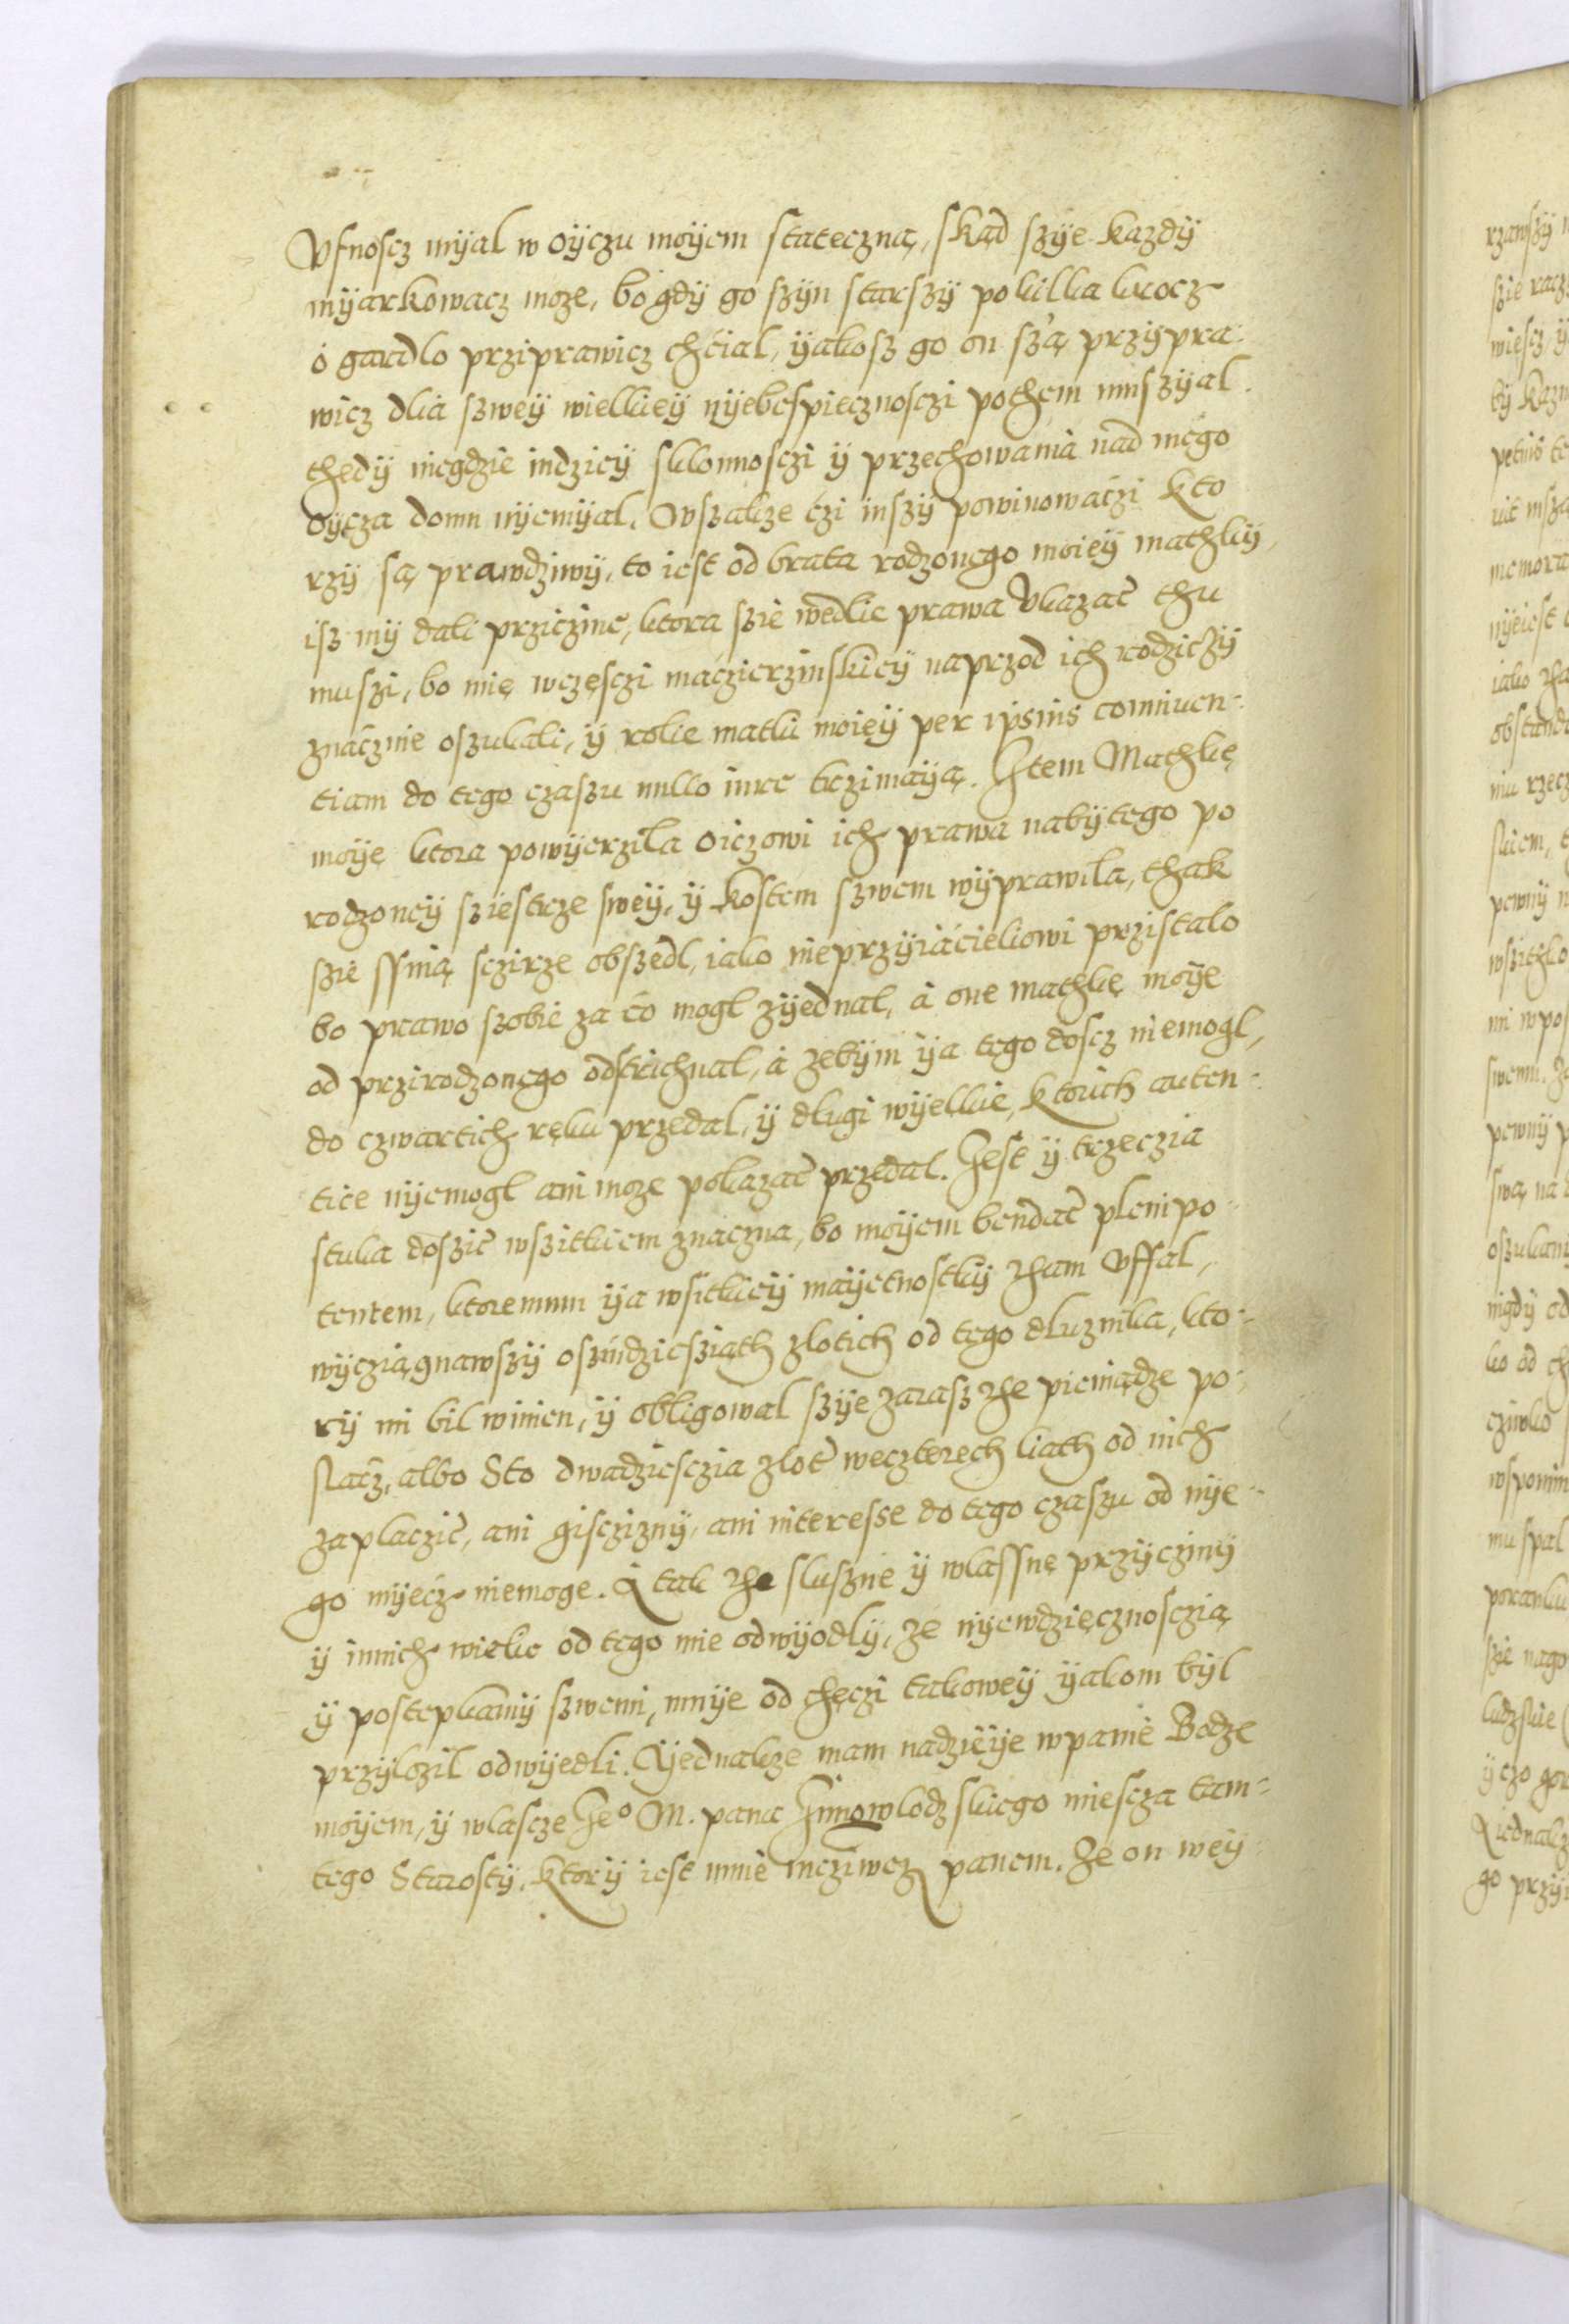 Vfnoscz mÿal w oÿczu moÿem stateczną, skąd szÿe każdÿ
mÿarkowacz moze, bo gdÿ go szÿn starszÿ po kilka krocz
o gardlo prziprawicz chćial, ÿakosz go on sżą przÿpra-
wicz dlia szweÿ wielkieÿ nÿebespiecznosczi pothem musżÿal
thedÿ niegdzie indzieÿ sklonnosczi ÿ przechowania nad mego
oÿcza domu nÿemÿal. Wszakze czi inszÿ powinowaczi kto
rzÿ są prawdziwÿ, to iest od brata rodzonego moieÿ mathkÿ,
isz mÿ dali przicżine, ktora szie wedlie prawa Vkazać thu
muszi, bo mię wczesczi maczierzinskieÿ naprzod ich rodziczÿ
znacznie oszukali, ÿ rolie matki moieÿ per ipsius conniuen-
tiam do tego czaszu nullo iure trzimaÿą. Item Mathkę
moÿę ktora powÿerzila oiczowi ich prawa nabÿtego po
rodzoneÿ sziestrze sweÿ, ÿ kostem szwem wÿprawila, thak
szie ssnią sczirze obszedl, iako nieprzÿiaćieliowi przistalo
bo prawo szobie za co mogl zÿednal, a one mathkę moÿe
od przirodzonego odstrichnal, a zebÿm ÿa tego doscz niemogl,
do czwartich ręku przedal, ÿ dlugi wÿelkie, ktorich auten-
tice nÿemogl ani moze pokazać przedal. Iest ÿ trzeczia
stuka doszić wszitkiem znaczna, bo moÿem bendać plenipo-
tentem, ktoremum ÿa wsitkieÿ maÿetnostkÿ tham vffal,
wÿcziągnawszÿ oszmdziesziąth zlotich od tego dluznika, kto-
rÿ mi bil winien, ÿ obligowal szÿe zarasz the pieniądze po-
slacz, albo Sto dwadziesczia zlot weczterech liath od nich
zaplaczić, ani giscziznÿ, ani interesse do tego czaszu od nÿe-
go mÿecz niemoge. A tak the sluszne ÿ wlassnę przÿczinÿ
ÿ innich wielie od tego mie odwÿodlÿ, że nÿewdzięcznosczią
ÿ postepkamÿ szwemi, mnÿe od chęczi takoweÿ ÿakom bÿl
przÿlozil odwÿedli. Aÿednakze mam nadzieÿe wpanie Bodze
moÿem, ÿ wlascze Ieº M. pana Innowlodzskiego miescza tam-
tego Starostÿ, ktorÿ iest mnie mcziwez panem. Ze on weÿ